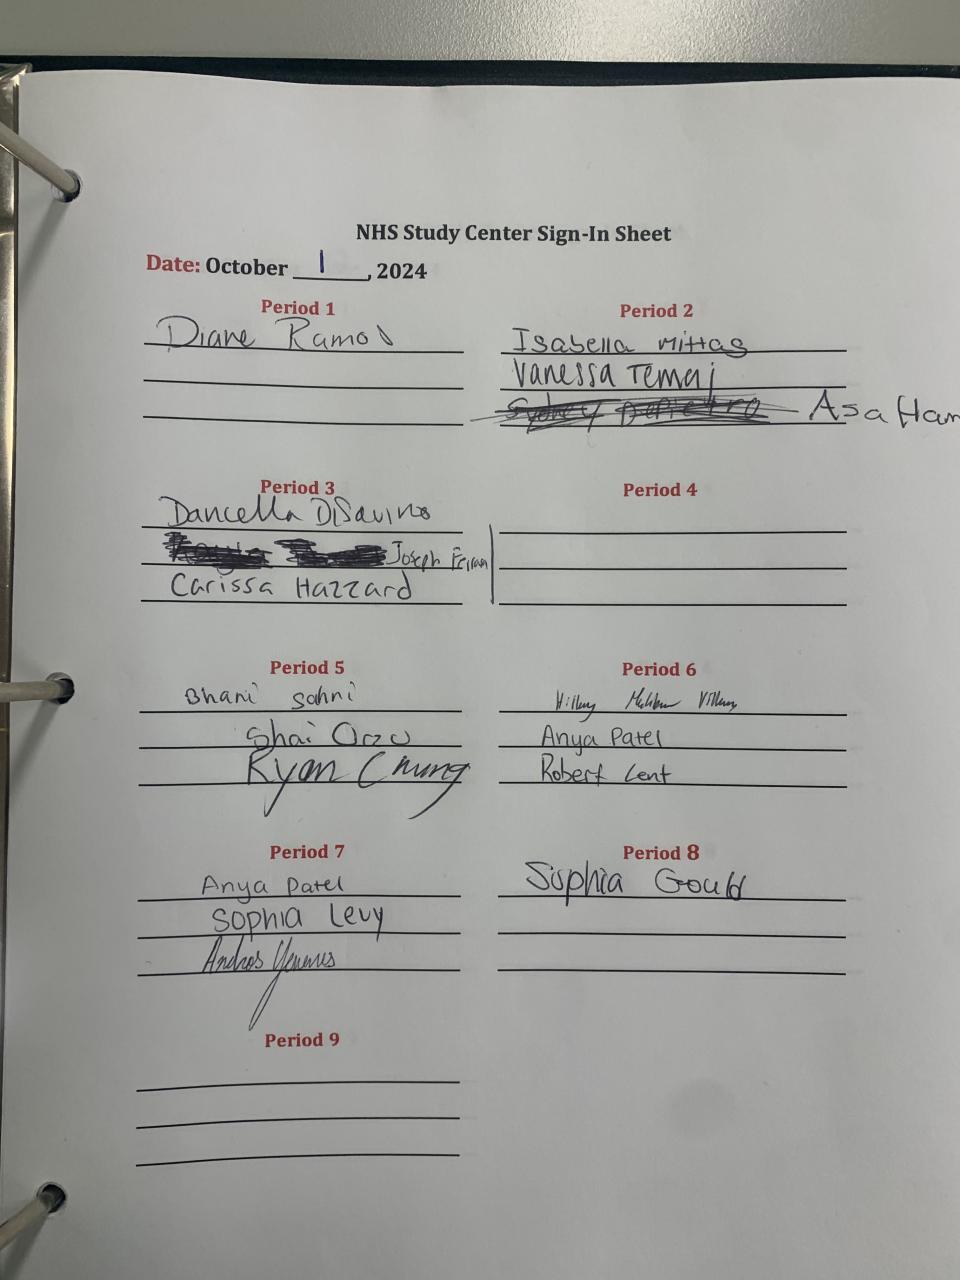 NHS Study Center Sign-In Sheet
Date: October 1, 2024
Period 1
Diane Ramos
Period 2
Isabella Mittas
Vanessa Temaj
Asa Ham
Period 3
Dancella DiSavino
Joseph
Carissa Hazzard
Period 4
Period 5
Bhani Sahni
Shai Orzu
Ryan Chung
Period 6
Hillary
Anya Patel
Robert Lent
Period 7
Anya Patel
Sophia Levy
Andros
Period 8
Sophia Gould
Period 9